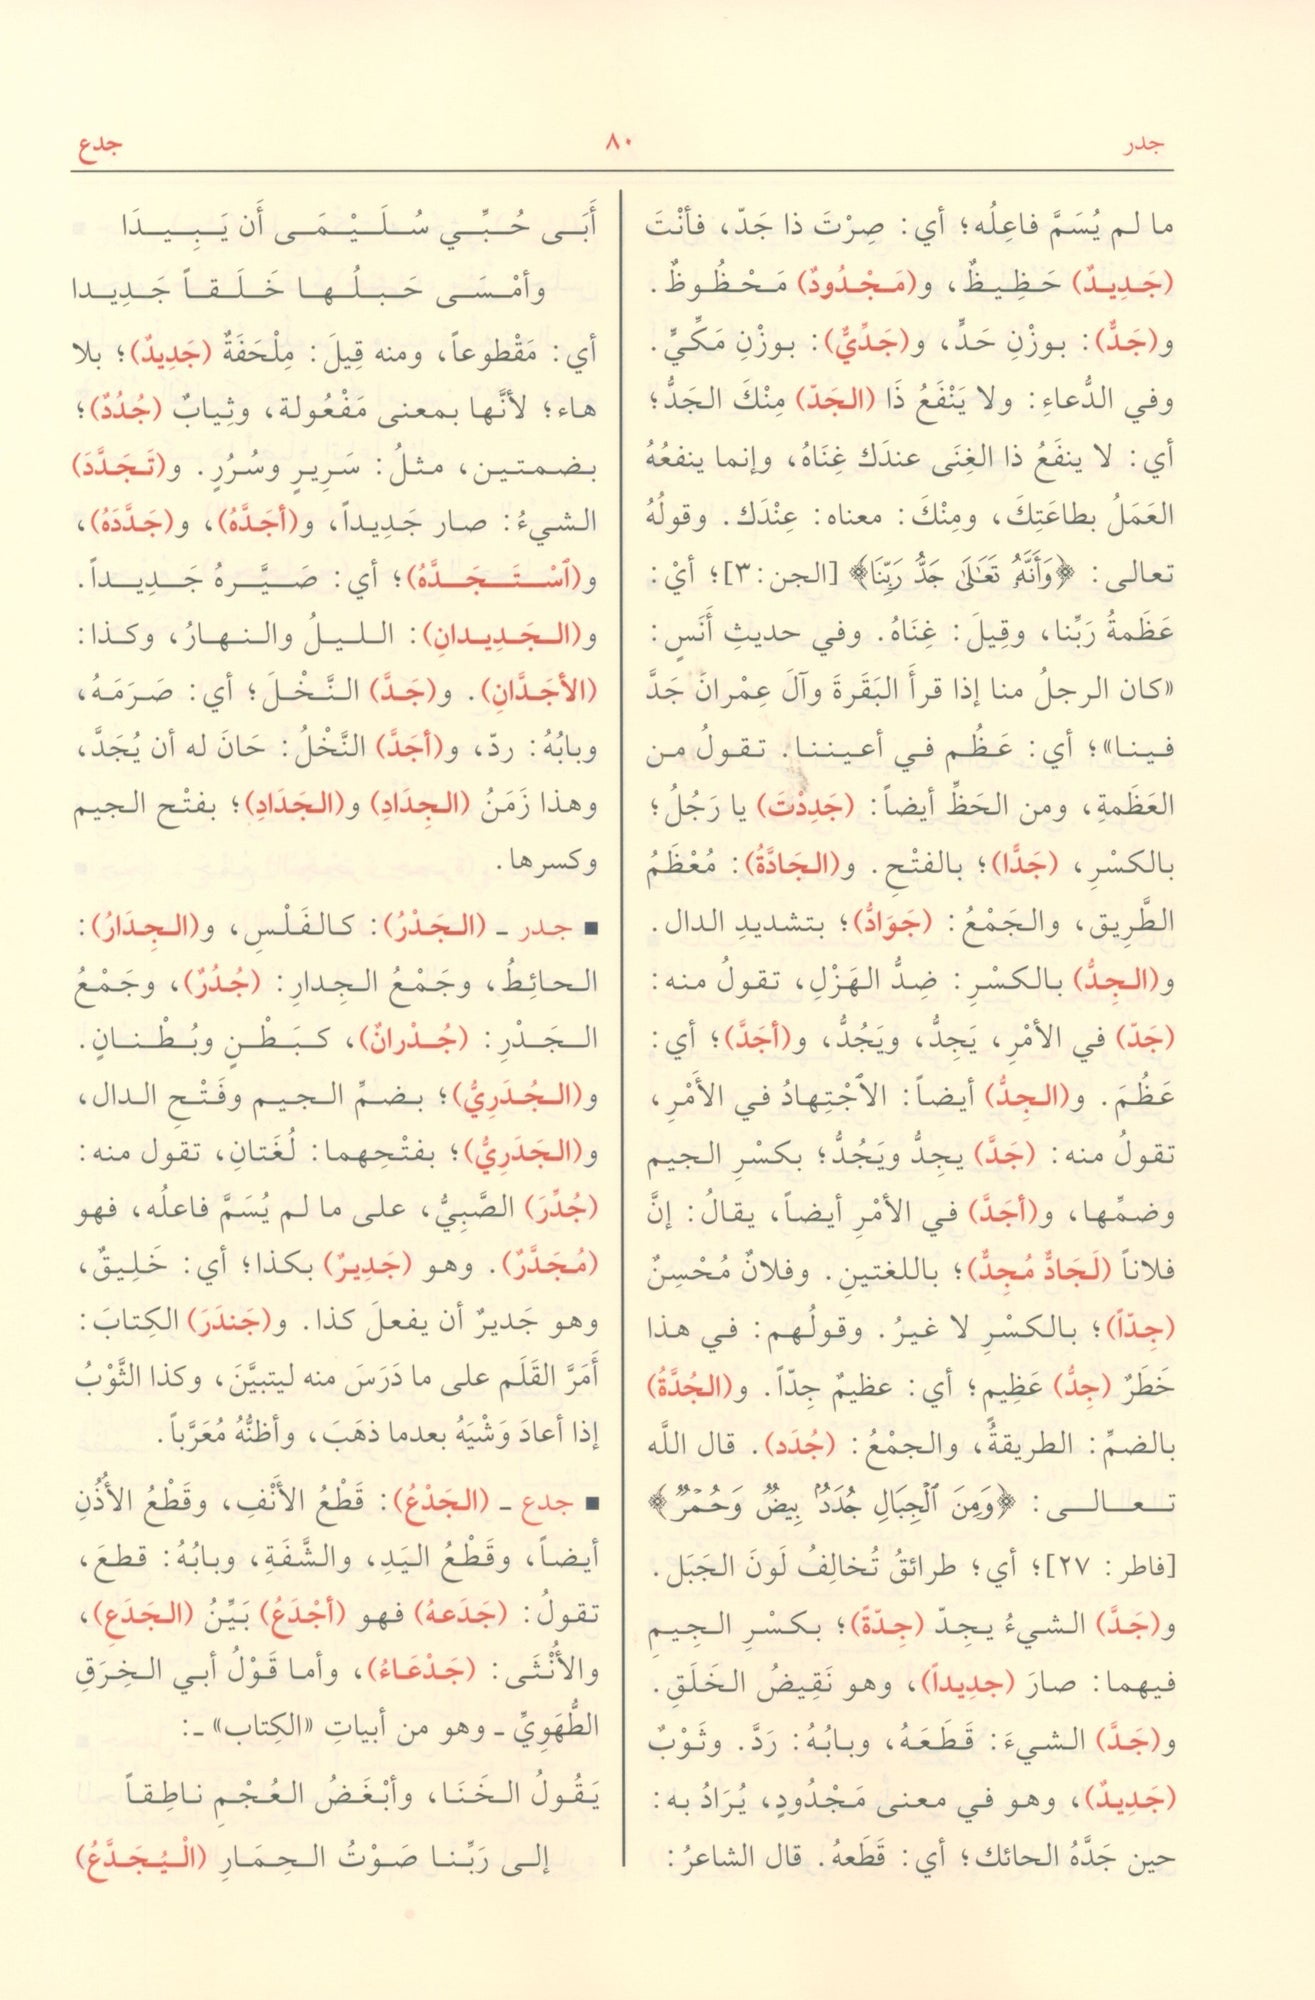 جدر ٨٠ جدع
ما لم يُسَمَّ فاعِلُه؛ أي: صِرْتَ ذا جَدّ، فأنْتَ
(جَدِيدٌ) حَظِيظٌ، و(مَجْدُودٌ) مَحْظُوظٌ.
و(جَدٌّ): بوزْنِ حَدٍّ، و(جَدِّيٌّ): بوزْنِ مَكِّيٍّ.
وفي الدُّعاءِ: ولا يَنْفَعُ ذَا (الجَدّ) مِنْكَ الجَدُّ؛
أي: لا ينفَعُ ذا الغِنَى عندَك غِنَاهُ، وإنما ينفعُهُ
العَمَلُ بطاعَتِكَ، ومِنْكَ: معناه: عِنْدَك. وقولُهُ
تعالى: ﴿وَأَنَّهُۥ تَعَٰلَىٰ جَدُّ رَبِّنَا﴾ [الجن: ٣]؛ أيْ:
عَظَمةُ رَبِّنا، وقِيلَ: غِنَاهُ. وفي حديثِ أَنَسٍ:
«كان الرجلُ منا إذا قرأَ البَقَرةَ وآلَ عِمْرانَ جَدَّ
فينا»؛ أي: عَظُم في أعيننا. تقولُ من
العَظَمةِ، ومن الحَظِّ أيضاً: (جَدِدْتَ) يا رَجُلُ؛
بالكسْرِ، (جَدًّا)؛ بالفتْحِ. و(الجَادَّةُ): مُعْظَمُ
الطَّرِيق، والجَمْعُ: (جَوَادُّ)؛ بتشديدِ الدال.
و(الجِدُّ) بالكسْرِ: ضِدُّ الهَزْلِ، تقولُ منه:
(جَدّ) في الأمْرِ، يَجِدُّ، ويَجُدُّ، و(أجَدَّ)؛ أي:
عَظُمَ. و(الجِدُّ) أيضاً: الاجْتِهادُ في الأمْرِ،
تقولُ منه: (جَدَّ) يجِدُّ ويَجُدُّ؛ بكسْرِ الجيم
وضمِّها، و(أجَدَّ) في الأمْرِ أيضاً، يقالُ: إنَّ
فلاناً (لَجَادٌّ مُجِدٌّ)؛ باللغتينِ. وفلانٌ مُحْسِنٌ
(جِدّاً)؛ بالكسْرِ لا غيرُ. وقولُهم: في هذا
خَطَرٌ (جِدُّ) عَظِيمٍ؛ أي: عظيمٌ جِدّاً. و(الجُدَّةُ)
بالضمِّ: الطريقةُ، والجمْعُ: (جُدَد). قال اللَّه
تعالى: ﴿وَمِنَ ٱلْجِبَالِ جُدَدٌۢ بِيضٌ وَحُمْرٌ﴾
[فاطر: ٢٧]؛ أي؛ طرائقُ تُخالِفُ لَونَ الجَبَل.
و(جَدَّ) الشيءُ يجِدّ (جِدّةً)؛ بكسْرِ الجِيمِ
فيهما: صارَ (جدِيداً)، وهو نَقِيضُ الخَلَقِ.
و(جَدَّ) الشيءَ: قَطَعَهُ، وبابُهُ: رَدَّ. وثَوْبٌ
(جَدِيدٌ)، وهو في معنى مَجْدُودٍ، يُرَادُ به:
حين جَدَّهُ الحائك؛ أي: قَطَعهُ. قال الشاعرُ:
أَبَى حُبِّي سُلَيْمَى أَن يَبِيدَا
وأمْسَى حَبلُها خَلَقاً جَدِيدا
أي: مَقْطوعاً، ومنه قِيلَ: مِلْحَفَةٌ (جَدِيدٌ)؛ بلا
هاء؛ لأنَّها بمعنى مَفْعُولة، وثِيابٌ (جُدُدٌ)؛
بضمتين، مثلُ: سَرِيرٍ وسُرُرٍ. و(تَجَدَّدَ)
الشيءُ: صار جَدِيداً، و(أجَدَّهُ)، و(جَدَّدَهُ)،
و(اسْتَجَدَّهُ)؛ أي: صَيَّرهُ جَدِيداً.
و(الجَدِيدانِ): الليلُ والنهارُ، وكذا:
(الأجَدَّانِ). و(جَدَّ) النَّخْلَ؛ أي: صَرَمَهُ،
وبابُهُ: ردّ، و(أجَدَّ) النَّخْلُ: حَانَ له أن يُجَدَّ،
وهذا زَمَنُ (الجِدَادِ) و(الجَدَادِ)؛ بفتْح الجيم
وكسرها.
■ جدر ـ (الجَدْرُ): كالفَلْسِ، و(الجِدَارُ):
الحائِطُ، وجَمْعُ الجِدارِ: (جُدُرٌ)، وجَمْعُ
الجَدْرِ: (جُدْرانٌ)، كبَطْنٍ وبُطْنانٍ.
و(الجُدَرِيُّ)؛ بضمِّ الجيم وفَتْحِ الدال،
و(الجَدَرِيُّ)؛ بفتْحِهما: لُغَتانِ، تقول منه:
(جُدِّرَ) الصَّبِيُّ، على ما لم يُسَمَّ فاعلُه، فهو
(مُجَدَّرٌ). وهو (جَدِيرٌ) بكذا؛ أي: خَلِيقٌ،
وهو جَديرٌ أن يفعلَ كذا. و(جَندَرَ) الكِتابَ:
أَمَرَّ القَلَم على ما دَرَسَ منه ليتبيَّنَ، وكذا الثَّوْبُ
إذا أعادَ وَشْيَهُ بعدما ذهَبَ، وأظنُّهُ مُعَرَّباً.
■ جدع ـ (الجَدْعُ): قَطْعُ الأَنْفِ، وقَطْعُ الأُذُنِ
أيضاً، وقَطْعُ اليَدِ، والشَّفَةِ، وبابُهُ: قطعَ،
تقولُ: (جَدَعهُ) فهو (أجْدَعُ) بَيِّنُ (الجَدَعِ)،
والأُنْثَى: (جَدْعَاءُ)، وأما قَوْلُ أبي الخِرَقِ
الطُّهَوِيِّ ـ وهو من أبياتِ «الكِتاب» ـ:
يَقُولُ الخَنَا، وأبْغَضُ العُجْمِ ناطِقاً
إلى رَبِّنا صَوْتُ الحِمَارِ (الْيُجَدَّعُ)